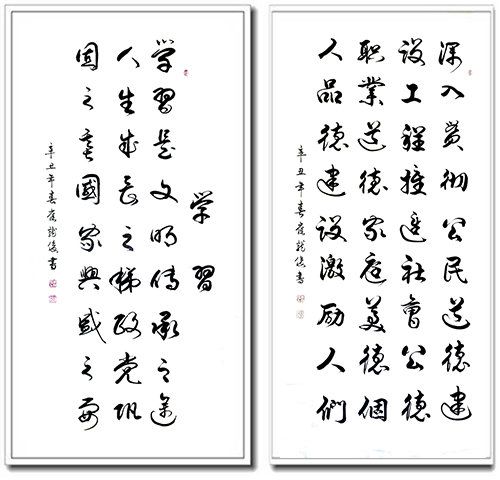 学習
学習是文明传承之途
人生成长之梯政党巩
固之基國家興盛之要
辛丑年春崔俊書
深入贯彻公民道德建
设工程推進社會公德
职業道德家庭美德個
人品德建设激励人們
辛丑年春崔俊書